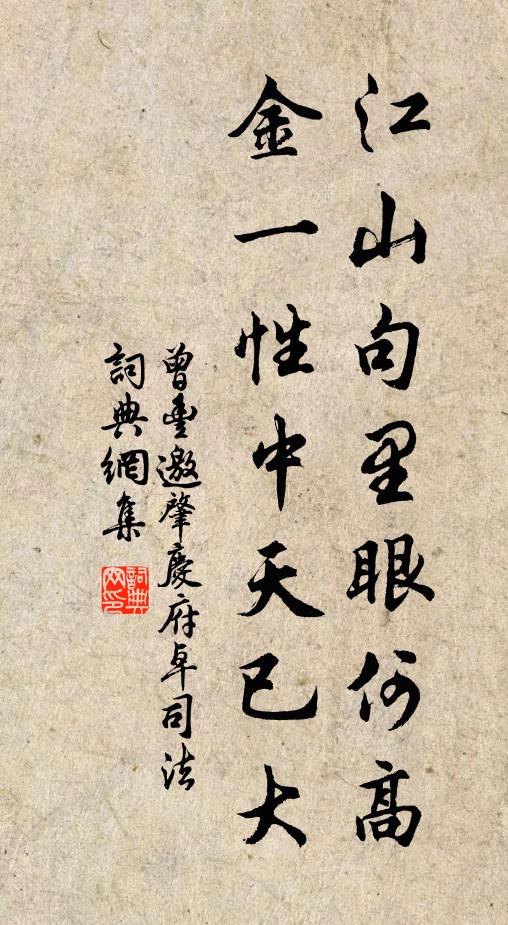 江山句里眼何高
金一性中天已大
曾豊邀肇慶府卓司法
詞典網集
詞典
网印